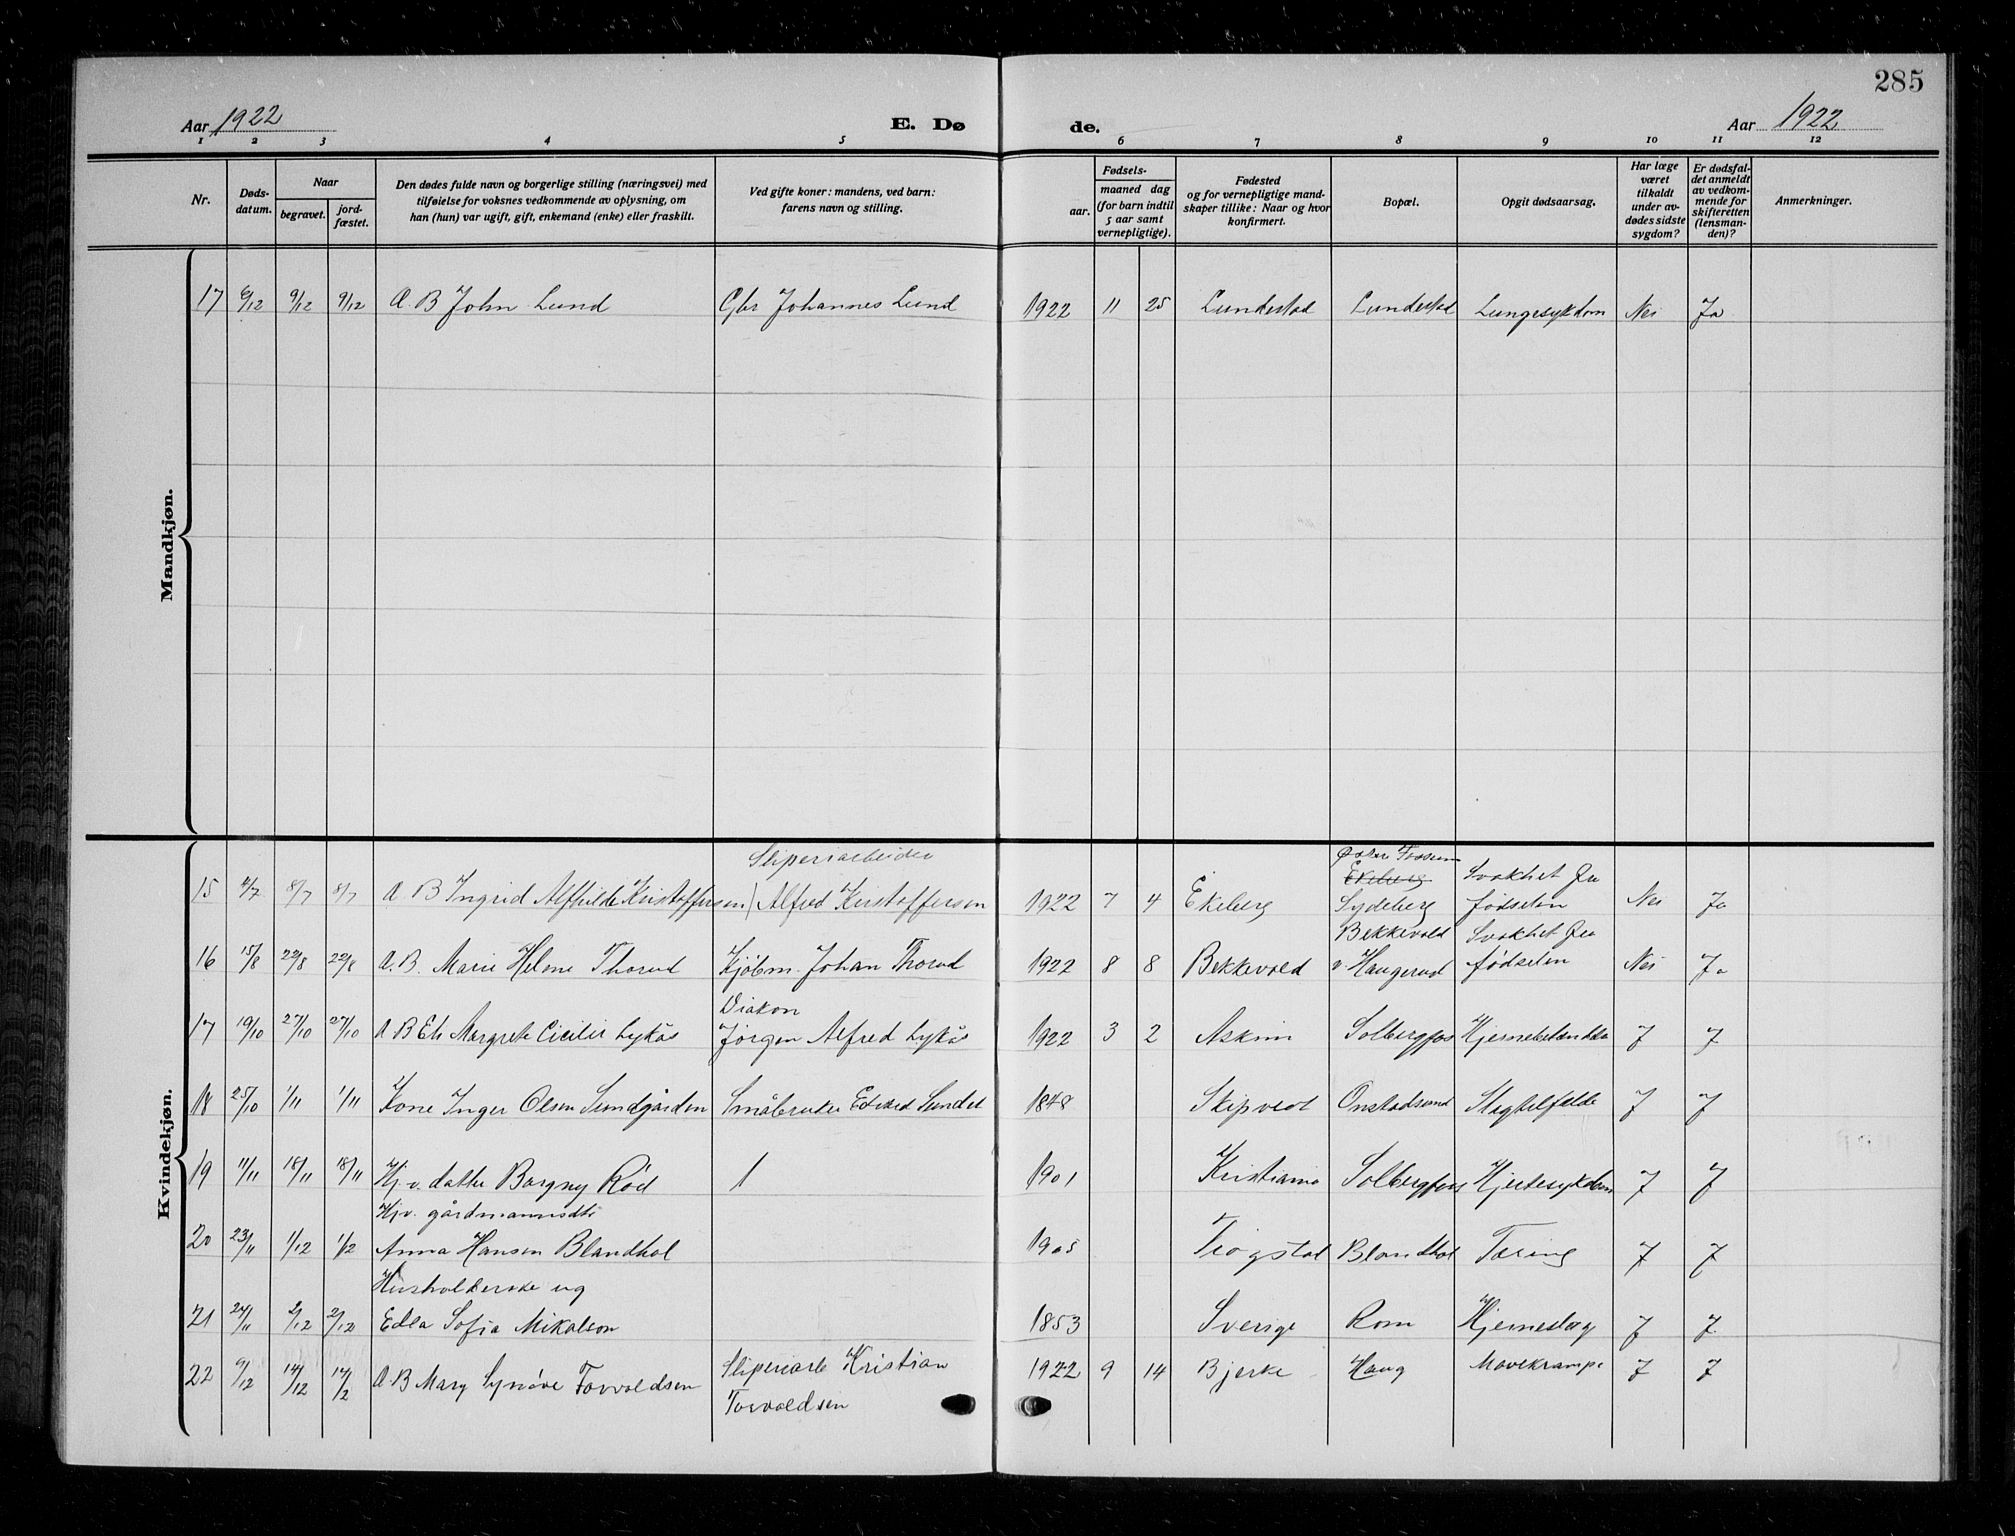 285
Aar 1922 E. Dø de. Aar 1922
1 2 3 4 5 6 7 8 9 10 11 12
Nr.
Døds-
datum.
Naar
begravet.
jord-
fæstet.
Den dødes fulde navn og borgerlige stilling (næringsvei) med
tilføielse for voksnes vedkommende av oplysning, om
han (hun) var ugift, gift, enkemand (enke) eller fraskilt.
Ved gifte koner: mandens, ved barn:
farens navn og stilling.
Fødsels-
aar.
maaned dag
(for barn indtil
5 aar samt
vernepligtige).
Fødested
og for vernepligtige mand-
skaper tillike: Naar og hvor
konfirmert.
Bopæl.
Opgit dødsaarsag.
Har læge
været
tilkaldt
under av-
dødes sidste
sygdom?
Er dødsfal-
det anmeldt
av vedkom-
mende for
skifteretten
(lensman-
den)?
Anmerkninger.
Mandkjøn.
17 6/12 9/12 9/12 A. B John Lund Gbr Johannes Lund 1922 11 25 Lundestad Lundestad Lungesykdom Nei Ja
Kvindekjøn.
Sliperiarbeider Østre Fossum
Ekeberg Svakhet fra
15 4/7 8/7 8/7 A B Ingrid Alfhilde Kristoffersen Alfred Kristoffersen 1922 7 4 Ekeberg Sydeberg fødselen Nei Ja
Bekkevold Svakhet fra
16 15/8 22/8 22/8 A. B. Marie Helene Thorud Kjöbm. Johan Thorud 1922 8 8 Bekkevold v. Haugerud fødselen Nei Ja
Diakon
17 19/10 27/10 27/10 A. B Eli Margrete Cicilie Lykås Jörgen Alfred Lykås 1922 3 2 Askim Solbergfos Hjernebetændelse J J
18 25/10 1/11 1/11 Kone Inger Olsen Sundgården Småbruker Edvard Sundet 1848 Skipvedt Onstadsund Slagtilfelde J J
19 11/11 18/11 18/11 Hj. v. datter Borgny Röd 1901 Kristiania Solbergfoss Hjertesykdom J J
Hjv. gårdmannsdtr
20 23/11 1/12 1/2 Anna Hansen Blandhol 1905 Trögstad Blandhol Tæring J J
Husholderske ug
21 24/11 2/12 2/12 Edla Sofia Mikalson 1853 Sverige Rom Hjerneslag J J
22 9/12 14/12 14/2 A B Mary Synöve Torvaldsen Sliperiarb Kristian 1922 9 14 Bjerke Haug Mavekrampe J J
Torvaldsen